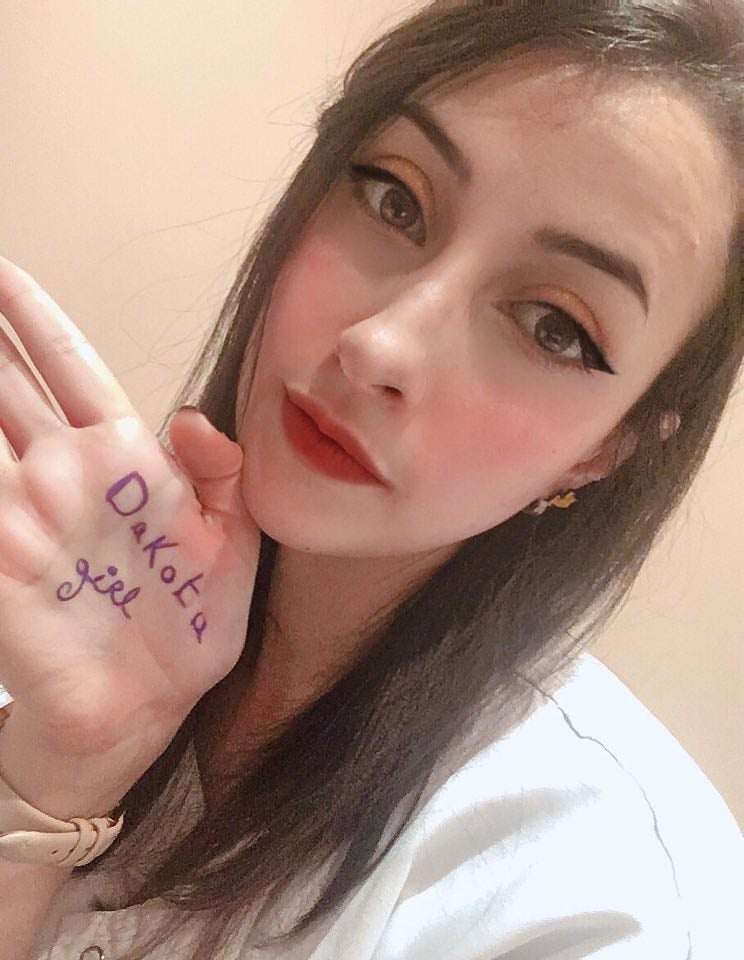 Dakota
girl